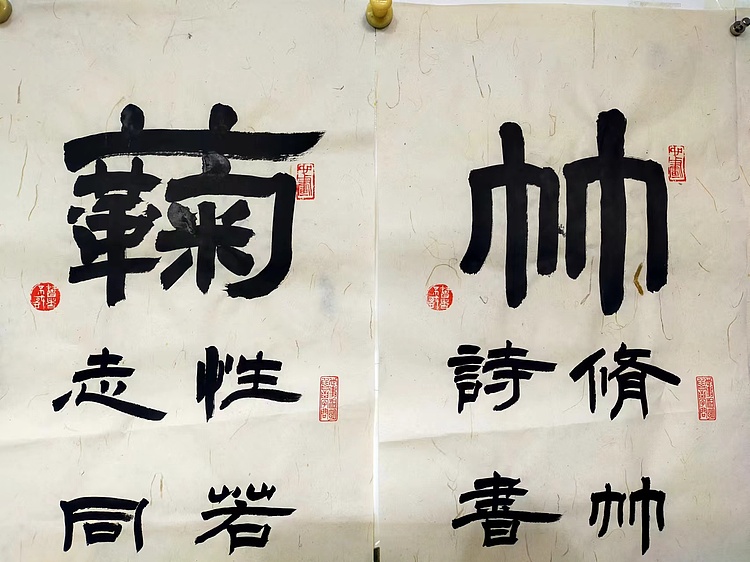 竹
脩竹
詩書
蘜
性若
志同